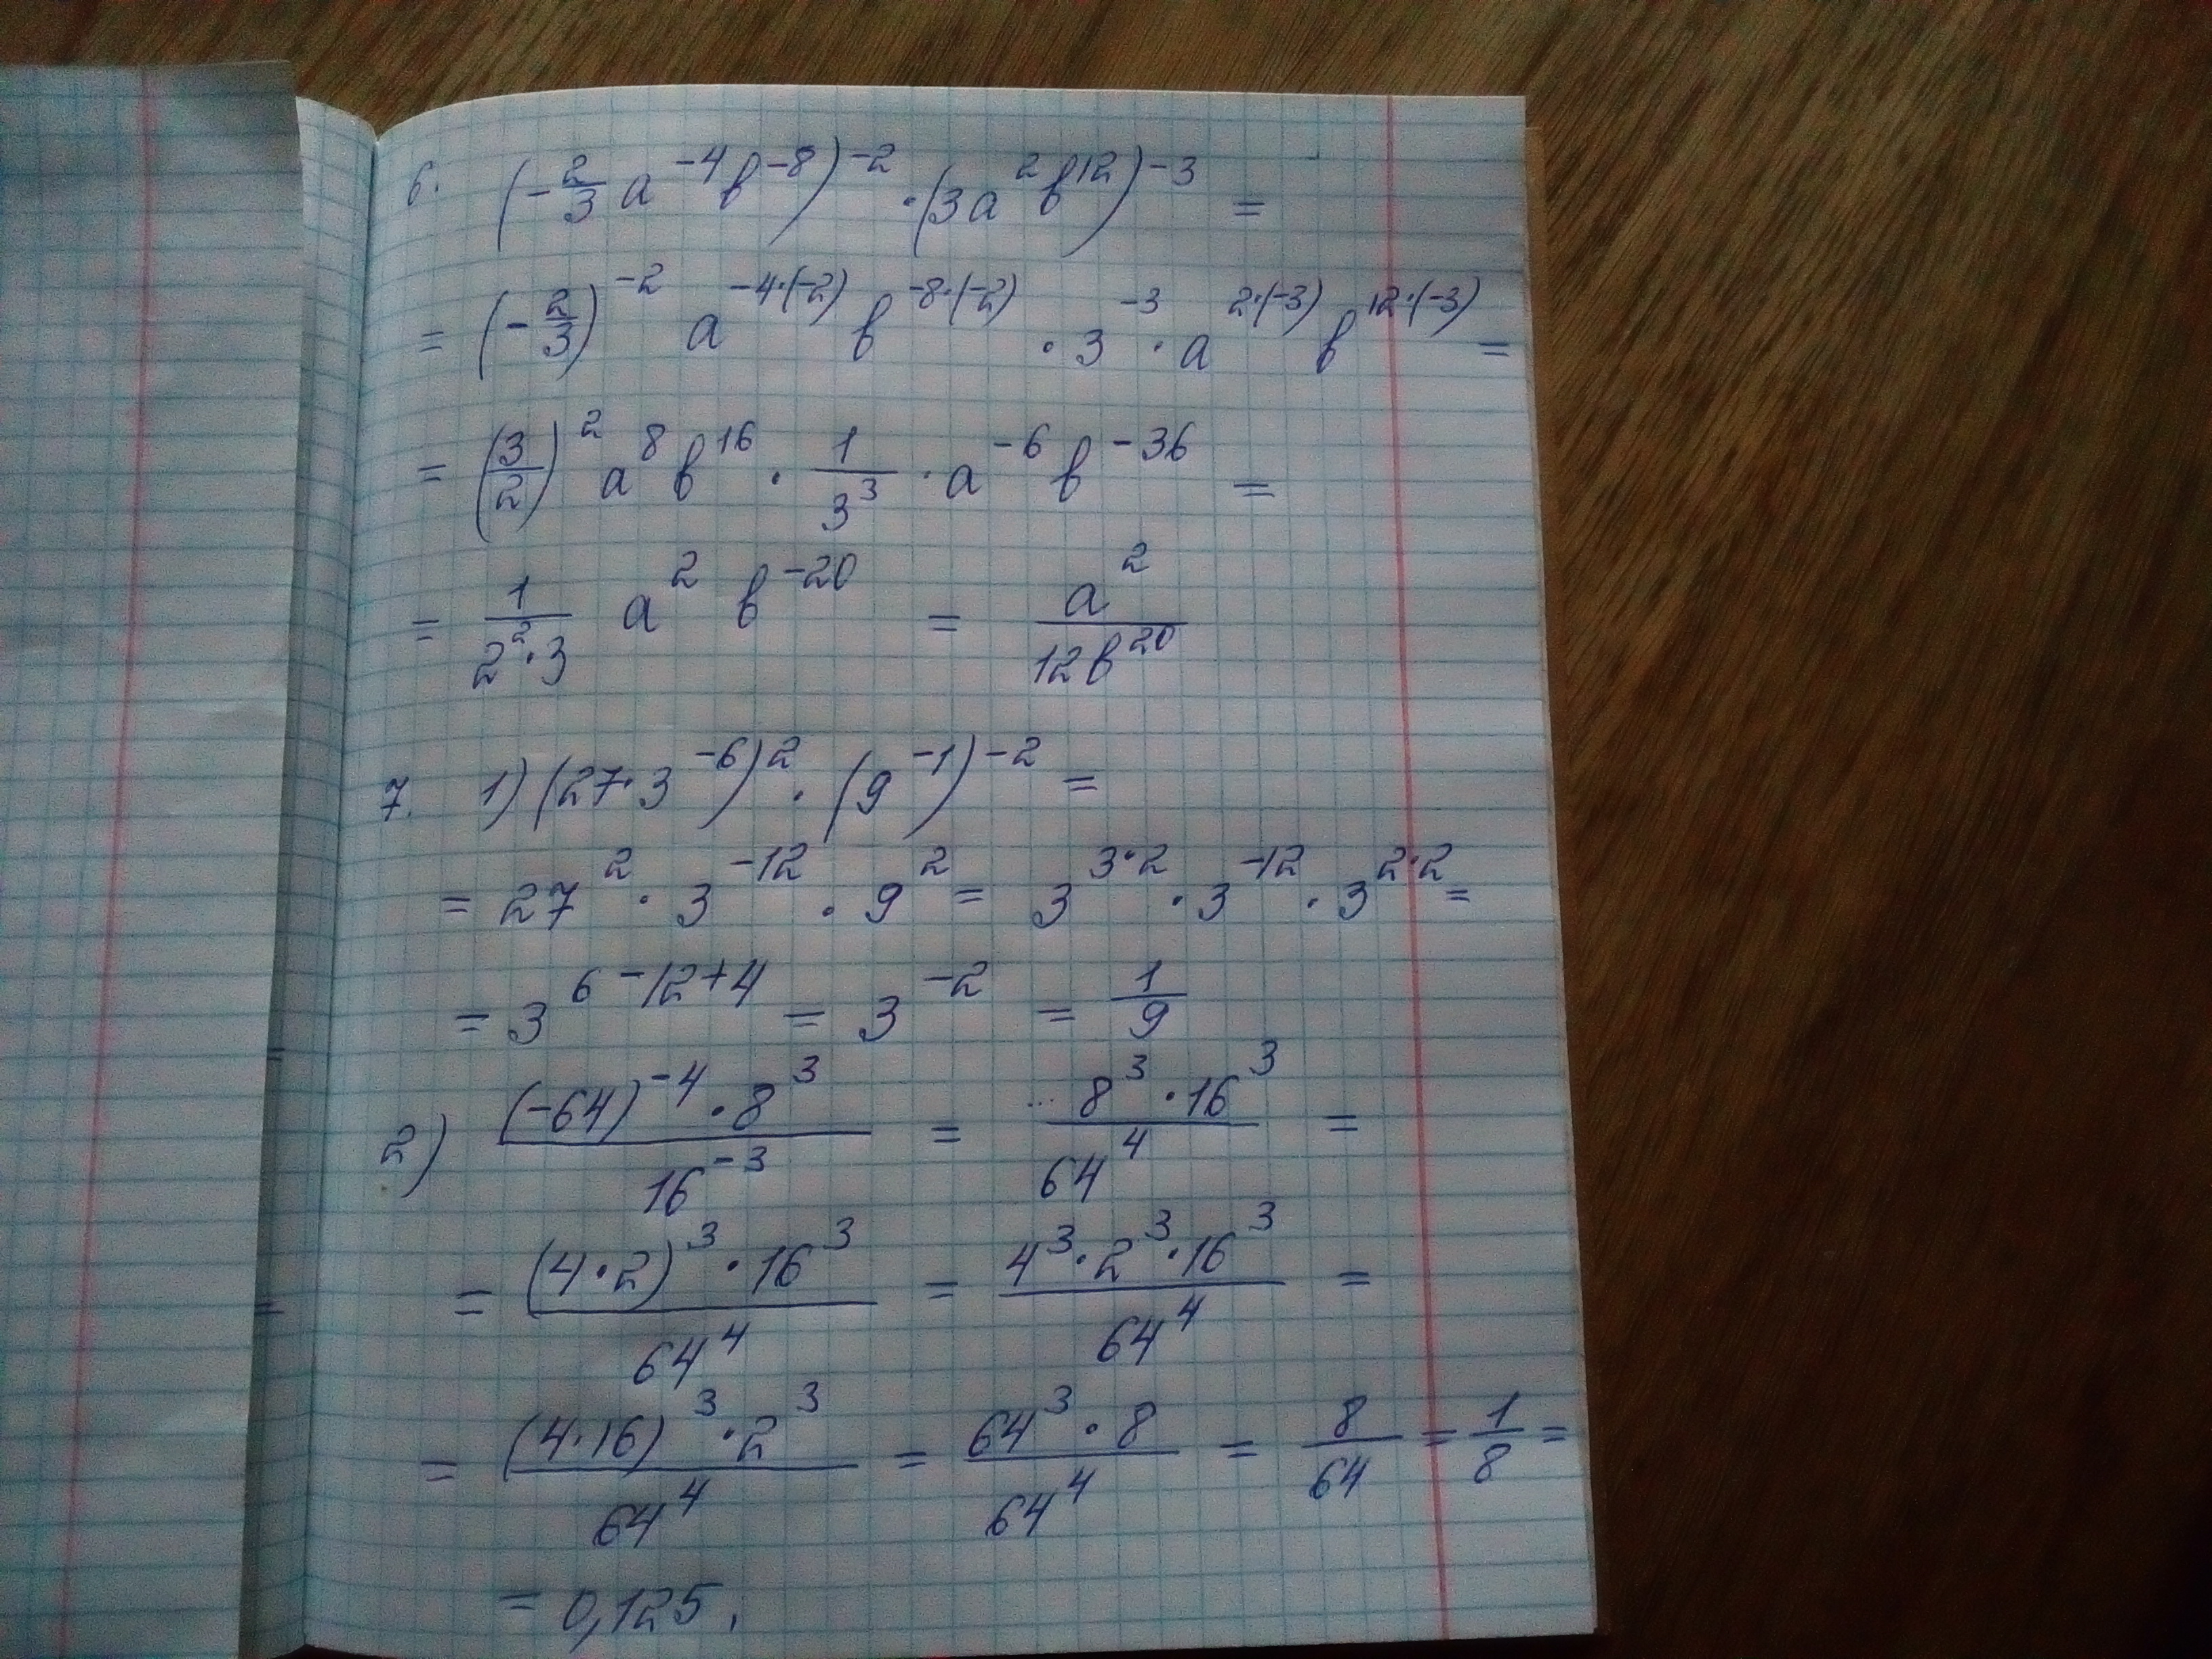 6. (-2/3 a^-4 b^-8)^-2 · (3a^2 b^12)^-3 =
= (-2/3)^-2 a^-4·(-2) b^-8·(-2) · 3^-3 · a^2·(-3) b^12·(-3) =
= (3/2)^2 a^8 b^16 · 1/3^3 · a^-6 b^-36 =
= 1/(2^2·3) a^2 b^-20 = a^2/(12b^20)
7. 1) (27·3^-6)^2 · (9^-1)^-2 =
= 27^2 · 3^-12 · 9^2 = 3^3·2 · 3^-12 · 3^2·2 =
= 3^6-12+4 = 3^-2 = 1/9
2) ((-64)^-4 · 8^3)/16^-3 = (8^3 · 16^3)/64^4 =
= ((4·2)^3 · 16^3)/64^4 = (4^3 · 2^3 · 16^3)/64^4 =
= ((4·16)^3 · 2^3)/64^4 = (64^3 · 8)/64^4 = 8/64 = 1/8 =
= 0,125.